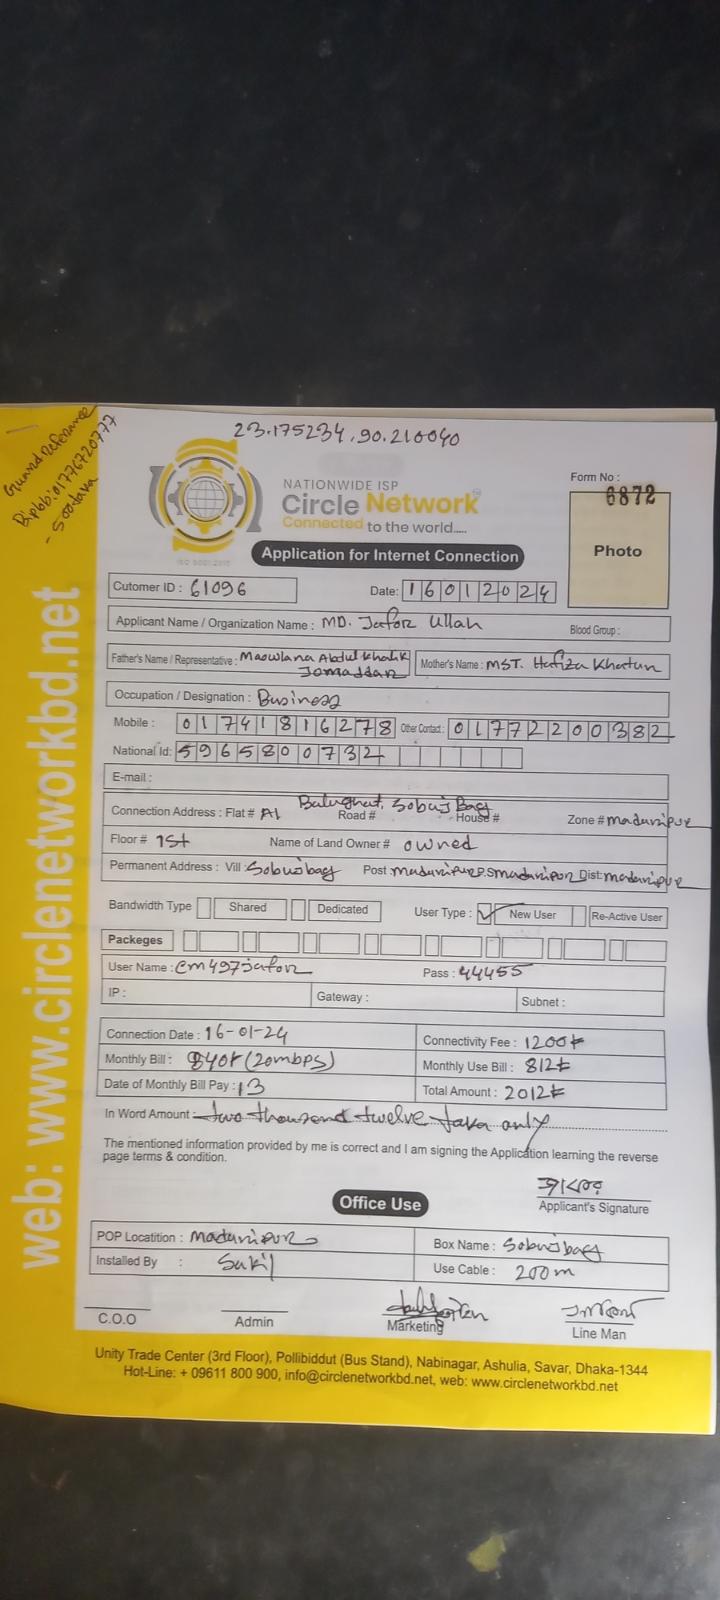 23.175234, 90.210040
Guard reference
Biplob: 01776720777
NATIONWIDE ISP
Circle Network
Connected to the world.....
ISO 9001:2015
Form No :
6872
Photo
Application for Internet Connection
Cutomer ID : 61096 Date: 16012024
Applicant Name / Organization Name : MD. Jafor Ullah Blood Group :
Father's Name / Representative : Maowlana Abdul Khalik Jomaddar Mother's Name : MST. Hafiza Khatun
Occupation / Designation : Business
Mobile : 01741816278 Other Contact : 01772200382
National Id: 5965800732
E-mail :
Connection Address : Flat # A1 Road # Balughat, Sobuj Bag House # Zone # madaripur
Floor # 1st Name of Land Owner # owned
Permanent Address : Vill : Sobujbag Post madaripur P.S madaripur Dist: madaripur
Bandwidth Type Shared Dedicated User Type : ✓ New User Re-Active User
Packeges
User Name : cm497jafor Pass : 44455
IP : Gateway : Subnet :
Connection Date : 16-01-24 Connectivity Fee : 1200৳
Monthly Bill : 840৳ (20mbps) Monthly Use Bill : 812৳
Date of Monthly Bill Pay : 13 Total Amount : 2012৳
In Word Amount : two thousand twelve taka only
The mentioned information provided by me is correct and I am signing the Application learning the reverse
page terms & condition.
জাফর
Applicant's Signature
Office Use
POP Locatition : Madaripur Box Name : Sobujbag
Installed By : Sakil Use Cable : 200m
C.O.O Admin Marketing Line Man
Unity Trade Center (3rd Floor), Pollibiddut (Bus Stand), Nabinagar, Ashulia, Savar, Dhaka-1344
Hot-Line: + 09611 800 900, info@circlenetworkbd.net, web: www.circlenetworkbd.net
web: www.circlenetworkbd.net